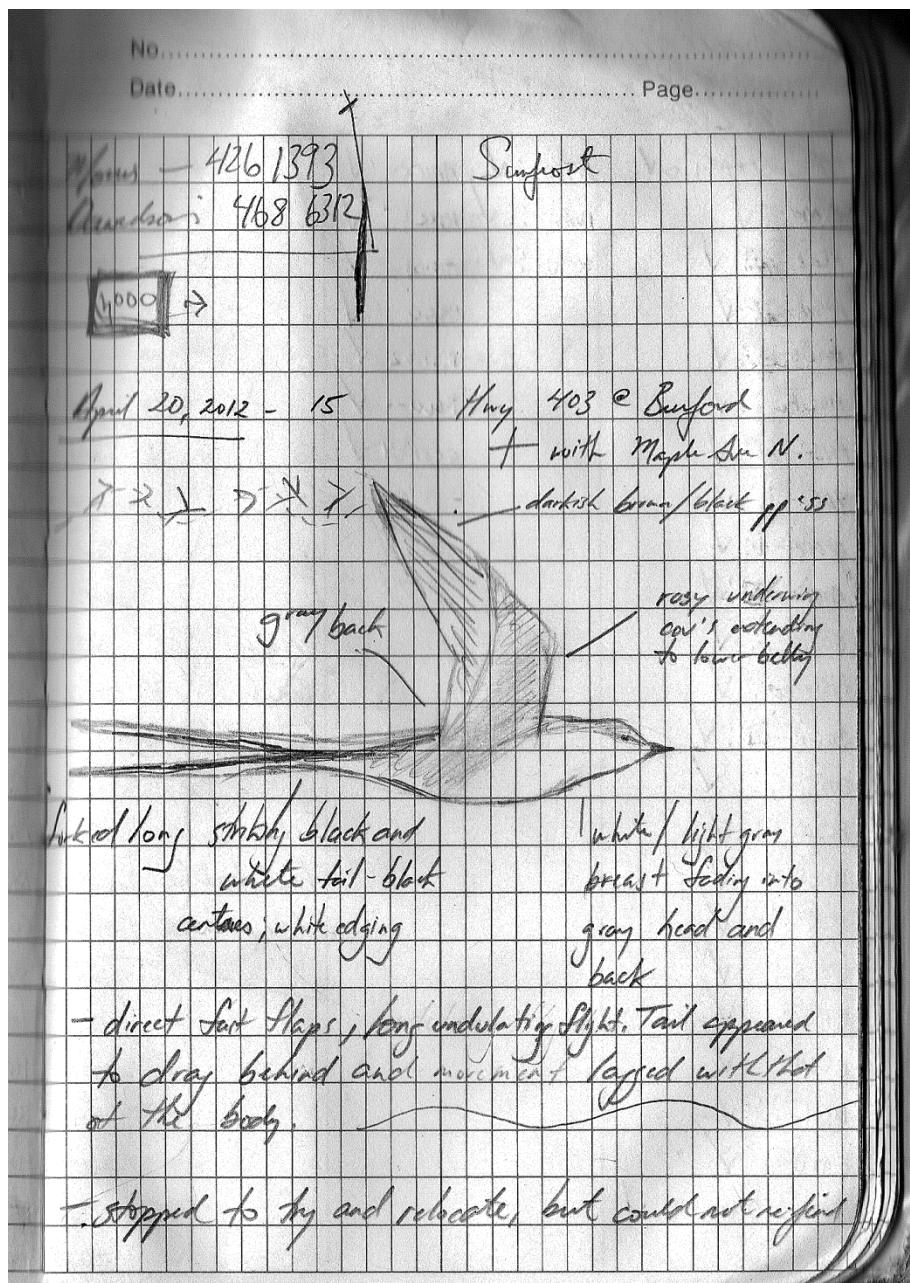 No.
Date. Page.
426 1393 Sunfrost
468 6312
1,000 →
April 20, 2012 - 15 Hwy 403 @ Burford
with Maple Ave N.
darkish brown/black pp'ss
rosy underwing
cov's extending
to lower belly
gray back
forked long strikingly black and
white tail - black
centres; white edging
white/light gray
breast fading into
gray head and
back
- direct fast flaps, long undulating flight. Tail appeared
to drag behind and movement lagged with that
of the body.
- stopped to try and relocate, but could not refind